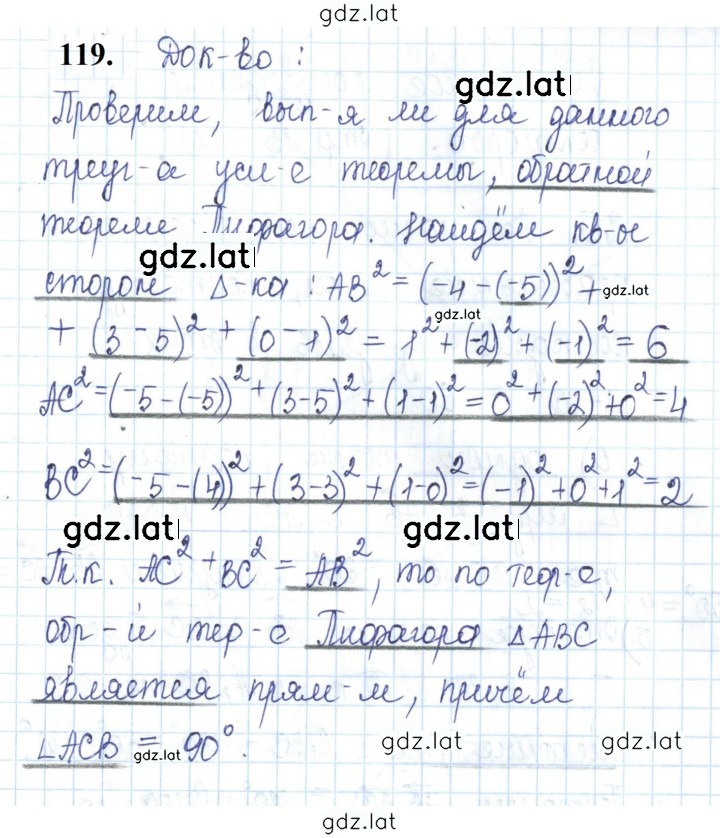 gdz.lat
119. Док-во :
gdz.lat
Проверим, вып-я ли для данного
треуг-а усл-е теоремы, обратной
теореме Пифагора. Найдём кв-ы
gdz.lat
сторон Δ-ка : AB² = (-4 - (-5))² + gdz.lat
gdz.lat
+ (3 - 5)² + (0 - 1)² = 1² + (-2)² + (-1)² = 6
AC² = (-5 - (-5))² + (3-5)² + (1-1)² = 0² + (-2)² + 0² = 4
BC² = (-5 - (4))² + (3-3)² + (1-0)² = (-1)² + 0² + 1² = 2
gdz.lat gdz.lat
Т.к. AC² + BC² = AB², то по теор-е,
обр-й тер-е Пифагора ΔABC
является прям-м, причём
∠ACB = 90°.
gdz.lat gdz.lat gdz.lat
gdz.lat